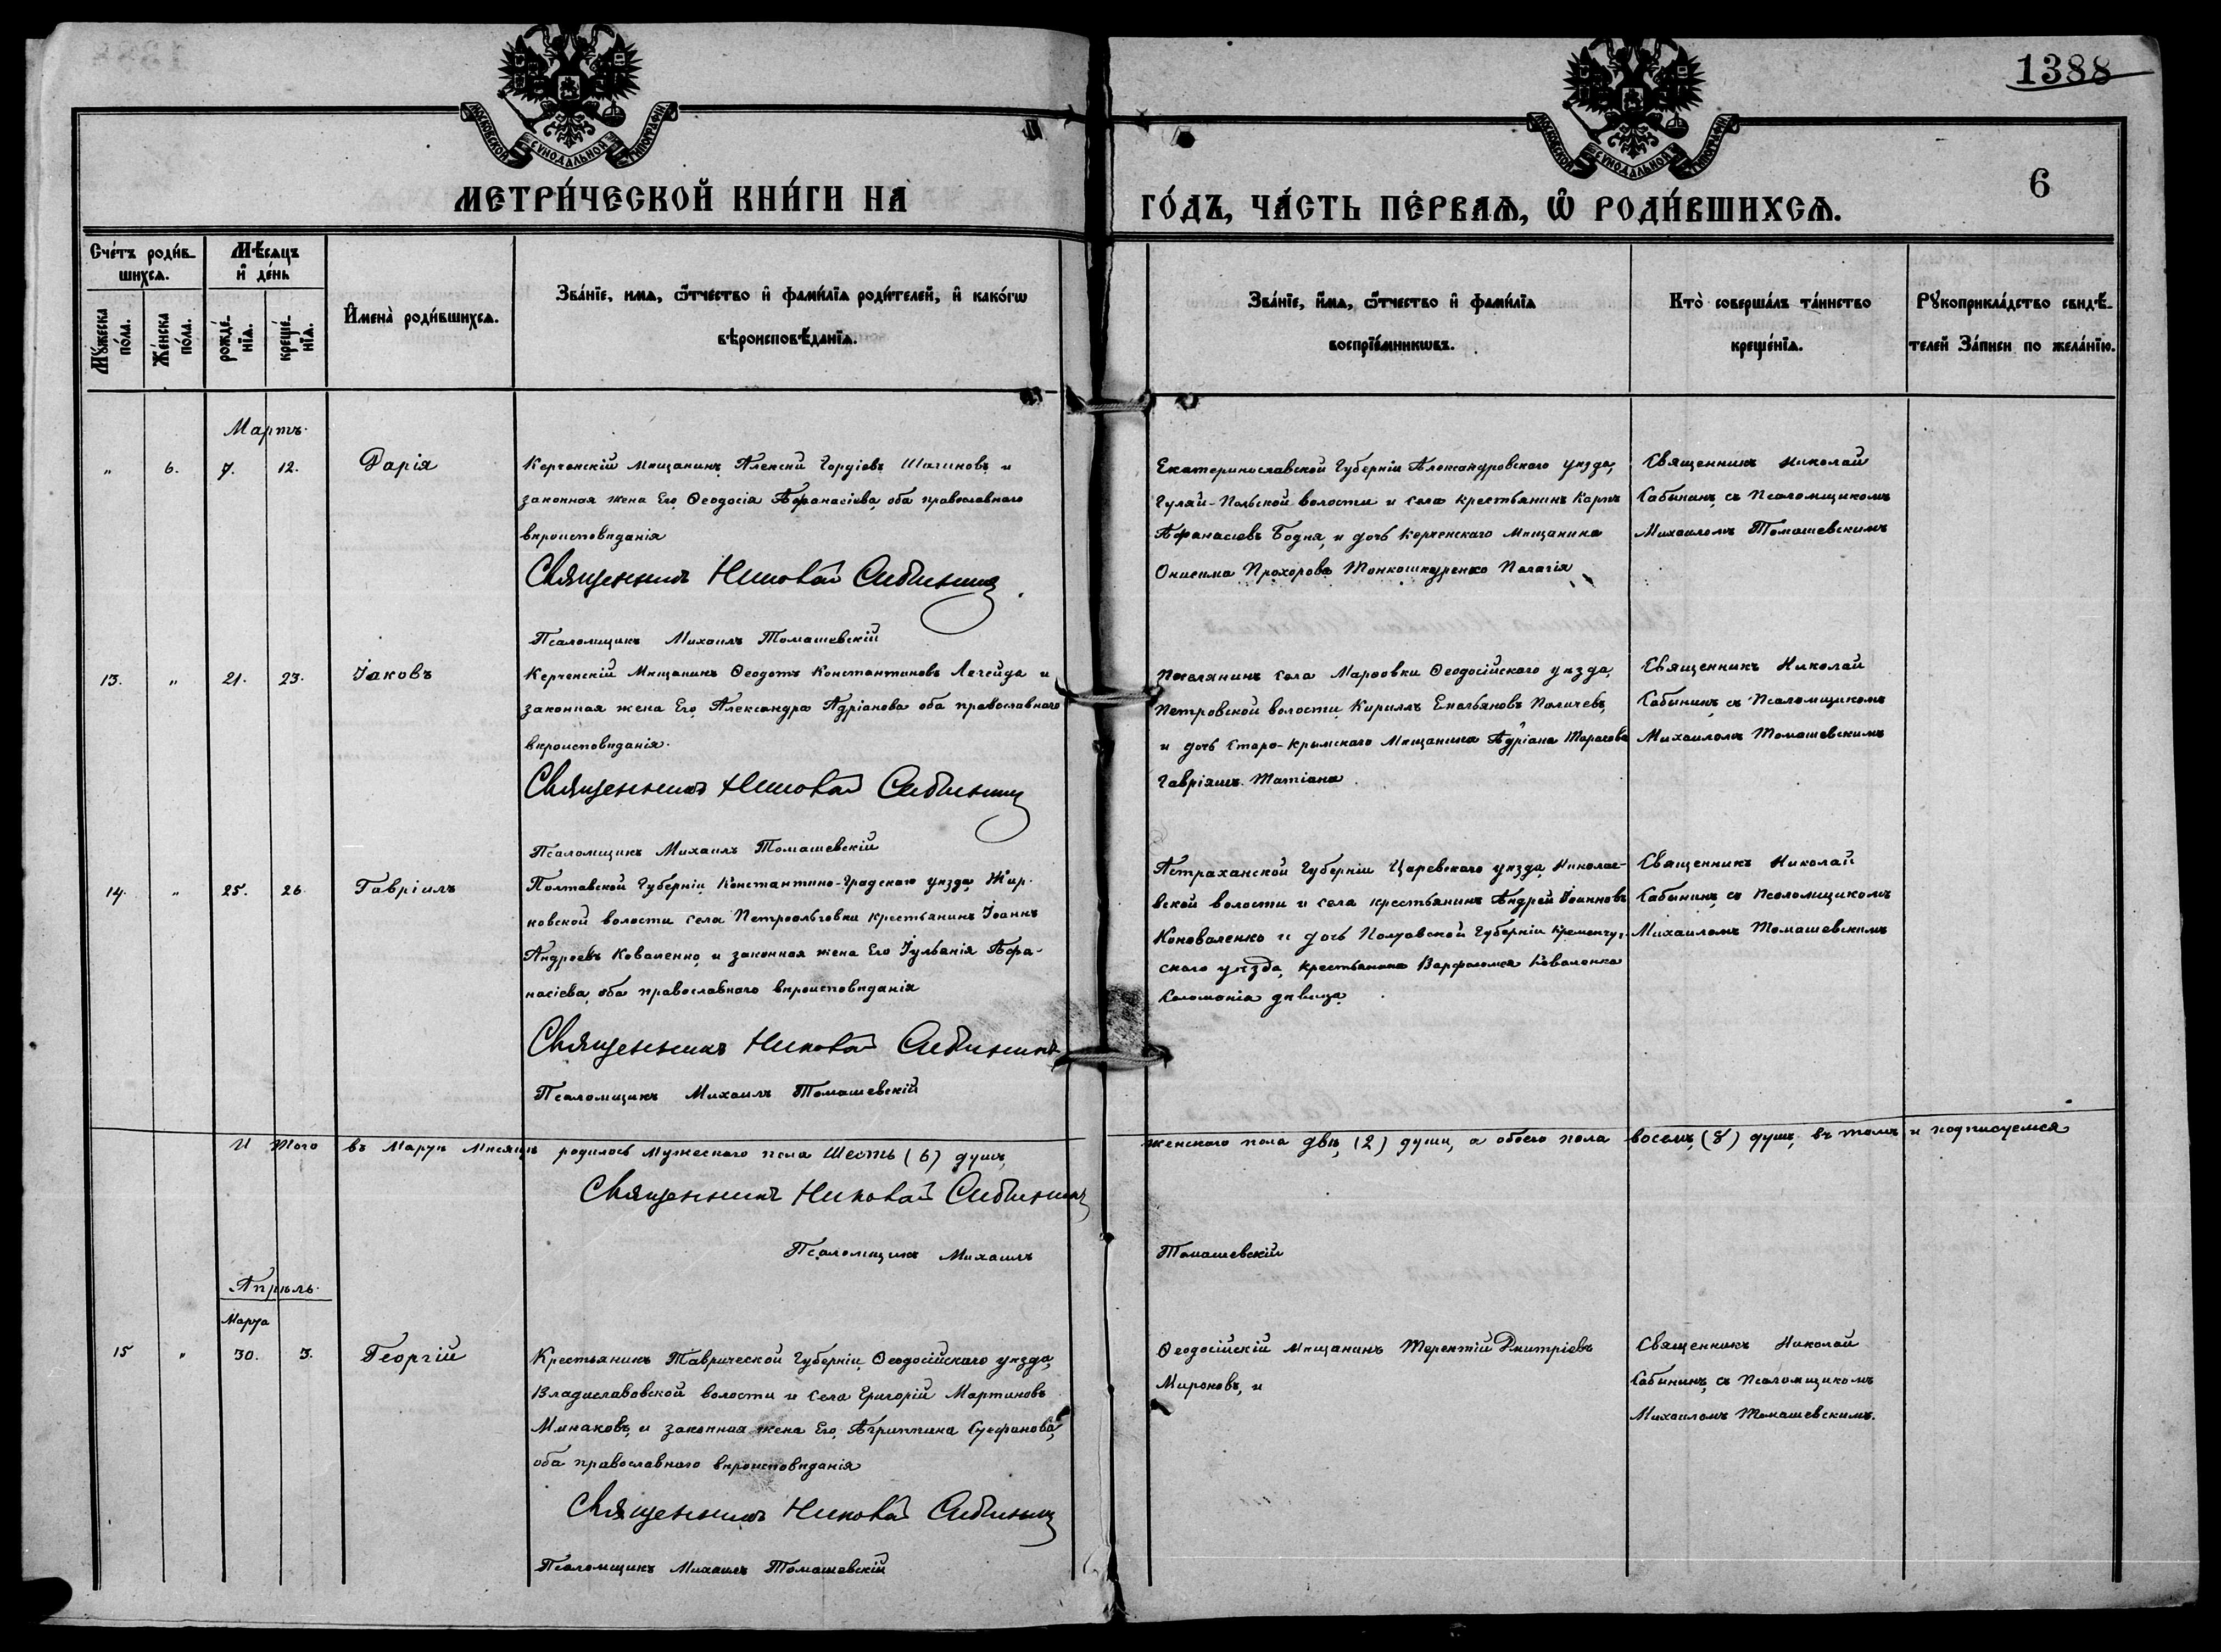 1388
МОСКОВСКОЙ СѴНОДАЛЬНОЙ ТИПОГРАФІИ
МОСКОВСКОЙ СѴНОДАЛЬНОЙ ТИПОГРАФІИ
6
МЕТРИ́ЧЕСКОЙ КНИ́ГИ НА ГО́ДЪ, ЧА́СТЬ ПЕ́РВАѦ, Ѡ҆ РОДИ́ВШИХСѦ.
Сче́тъ роди́в-
шихсѧ.
Мꙋ́жеска по́ла.
Же́нска по́ла.
Мѣ́сѧцъ
и҆ де́нь
рожде́-нїѧ.
креще́-нїѧ.
И҆мена̀ роди́вшихсѧ.
Зва́нїе, имѧ, ѻ҆́тчество и҆ фами́лїѧ роди́телей, и҆ како́гѡ
вѣроисповѣ́данїѧ.
Зва́нїе, и҆́мѧ, ѻ҆́тчество и҆ фами́лїѧ
воспрїе́мникѡвъ.
Кто̀ соверша́лъ та́инство
креще́нїѧ.
Рꙋкоприкла́дство свидѣ́-
телей За́писи по жела́нїю.
Мартъ.
" 6. 7. 12. Дарія
Керченскій Мѣщанинъ Алексѣй Гордіевъ Шагиновъ и
законная жена Его Ѳеодосія Аѳанасіева, оба православнаго
вѣроисповѣданія
Священникъ Николай Сабининъ
Псаломщикъ Михаилъ Томашевскій
Екатеринославской Губерніи Александровскаго уѣзда,
Гуляй-Польской волости и села крестьянинъ Карпъ
Аѳанасіевъ Бодня, и дочь Керченскаго Мѣщанина
Онисима Прохорова Тонкошкуренко Пелагія
Священникъ Николай
Сабининъ, съ Псаломщикомъ
Михаиломъ Томашевскимъ
13. " 21. 23. Іаковъ
Керченскій Мѣщанинъ Ѳеодотъ Константиновъ Легейда и
законная жена Его Александра Адріанова оба православнаго
вѣроисповѣданія.
Священникъ Николай Сабининъ
Псаломщикъ Михаилъ Томашевскій
Поселянинъ села Марѳовки Ѳеодосійскаго уѣзда,
Петровской волости Кириллъ Емельяновъ Паличевъ,
и дочь Старо-Крымскаго Мѣщанина Адріана Тарасова
Татіана
Священникъ Николай
Сабининъ съ Псаломщикомъ
Михаиломъ Томашевскимъ
14. " 25. 26. Гавріилъ
Полтавской Губерніи Константино-Градскаго уѣзда,
новской волости села Петроольговки крестьянинъ Іоаннъ
Андреевъ Коваленко и законная жена Его Іульанія Аѳа-
насіева, оба православнаго вѣроисповѣданія
Священникъ Николай Сабининъ
Псаломщикъ Михаилъ Томашевскій
Астраханской Губерніи Царевскаго уѣзда, Николаев-
вской волости и села крестьянинъ Андрей Іоанновъ
Коноваленко и дочь Полтавской Губерніи Кременчуг-
скаго уѣзда, крестьянина Варѳоломея Коваленка
Соломонія дѣвица
Священникъ Николай
Сабининъ, съ Псаломщикомъ
Михаиломъ Томашевскимъ
И Того въ Мартѣ Мѣсяцѣ родилось Мужескаго пола Шесть (6) душъ, женскаго пола двѣ, (2) души, а обоего пола восемь, (8) душъ, въ томъ и подписуемся
Священникъ Николай Сабининъ
Псаломщикъ Михаилъ Томашевскій
Апрѣль.
Марта
15 " 30. 3. Георгій
Крестьянинъ Таврической Губерніи Ѳеодосійскаго уѣзда,
Владиславовской волости и села Григорій Мартиновъ
Минаковъ, и законная жена Его, Агриппина Стефанова,
оба православнаго вѣроисповѣданія
Священникъ Николай Сабининъ
Псаломщикъ Михаилъ Томашевскій
Ѳеодосійскій мѣщанинъ Терентій Дмитріевъ
Мироновъ, и
Священникъ Николай
Сабининъ, съ Псаломщикомъ
Михаиломъ Томашевскимъ.